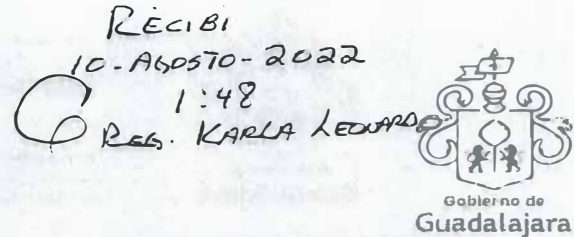 RECIBI
10-AGOSTO-2022
1:48
REG. KARLA LEONARDO
Gobierno de
Guadalajara